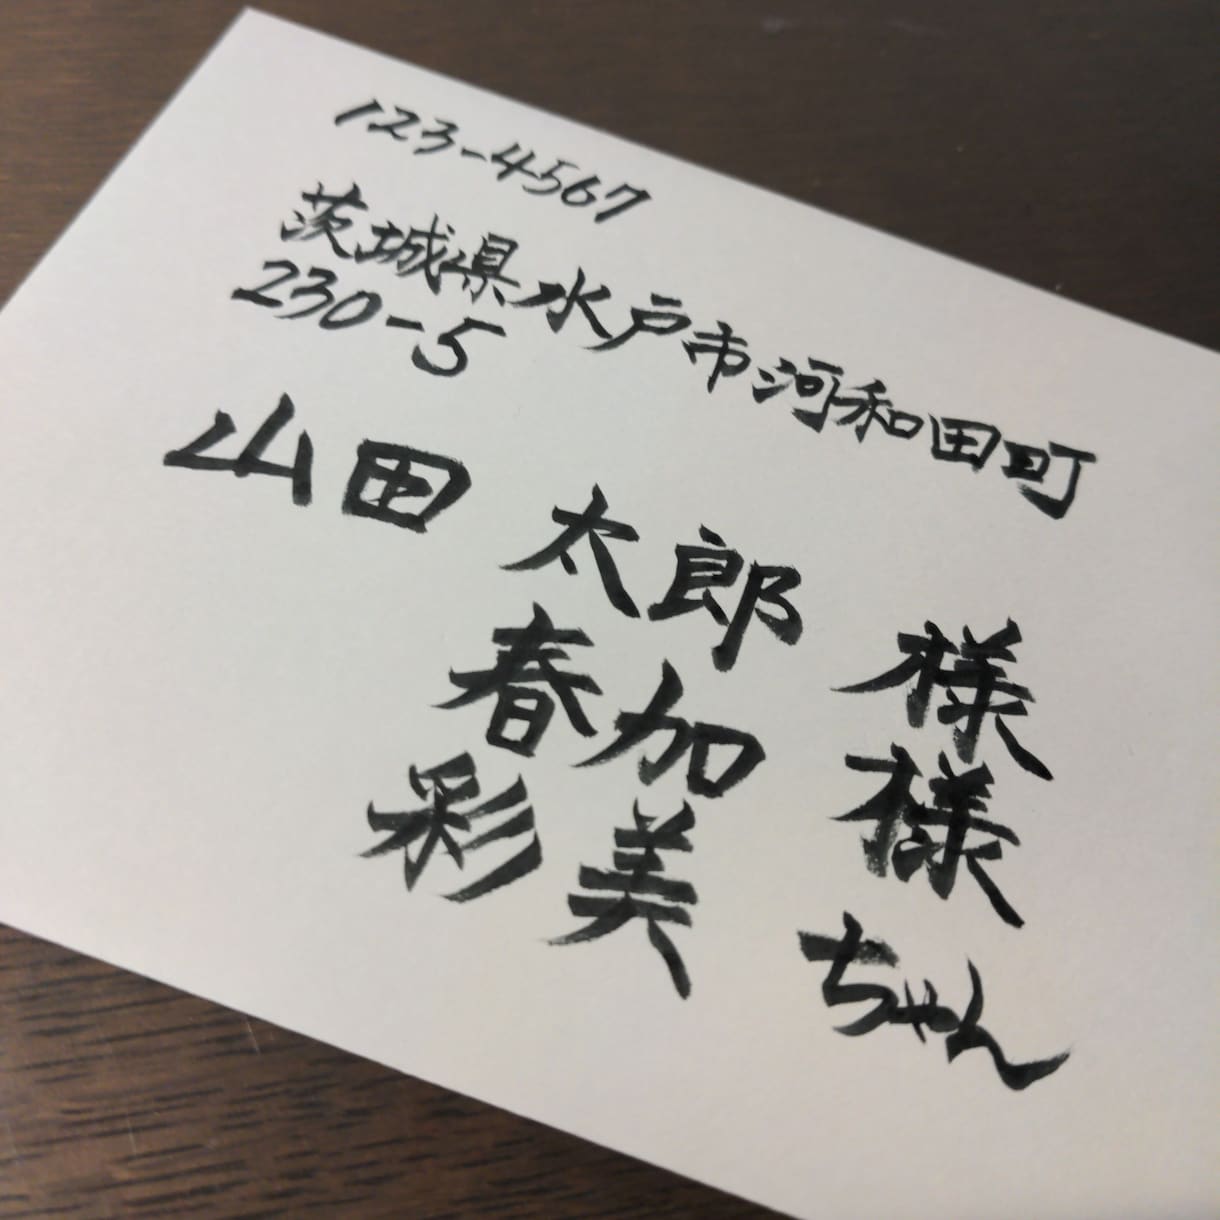 123-4567
茨城県水戸市河和田町
230-5
山田 太郎 様
春加 様
彩美 ちゃん